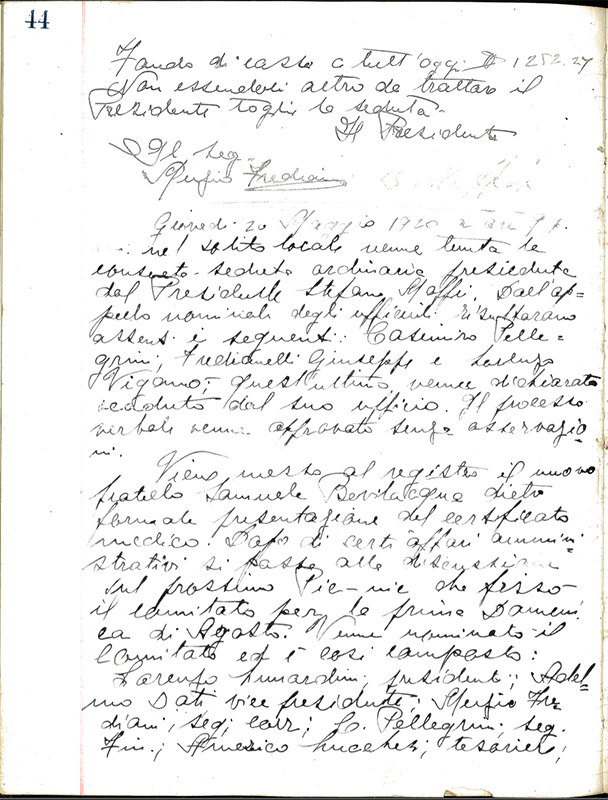 44
Fondo di cassa a tutt'oggi $1252.27
Non essendovi altro da trattare il
Presidente toglie la seduta.
Il Presidente
Il Seg.
Sergio Frediani
Giovedi 20 Maggio 1920 a ore 9 p.
nel solito locale venne tenuta la
consueta seduta ordinaria presieduta
dal Presidente Stefano Maffi. Dall'ap-
pello nominale degli ufficiali risultarano
assenti i seguenti: Casimiro Pelle=
grini, Fredianelli Giuseppe e Lorenzo
Vigano; quest'ultimo venne dichiarato
scaduto dal suo ufficio. Il processo
verbale venne approvato senza asservazio
ni.
Viene messo al registro il nuovo
fratello Samuele Bevilacqua dietro
formale presentazione del certificato
medico. Dopo di certi affari ammini-
strativi si passa alla discussione
sul prossimo Pic-nic che fissò
il comitato per la prima Domeni
ca di Agosto. Venne nominato il
Comitato ed è cosi composto:
Lorenzo Lunardini, presidente; Adel=
mo Dati vice presidente; Sergio Fre
diani, seg; corr; C. Pellegrini, seg.
Fin.; Americo Lucchesi, tesoriere;